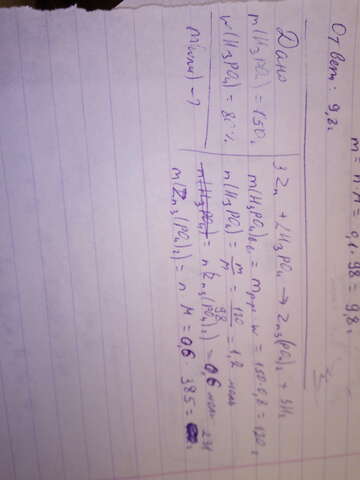 m = n · M = 0,1 · 98 = 9,8 г
Ответ: 9,8 г
Дано
m(H₃PO₄) = 150 г
w(H₃PO₄) = 80%
m(соли) - ?
3Zn + 2H₃PO₄ → Zn₃(PO₄)₂ + 3H₂
m(H₃PO₄) в.в. = m р-ра · w = 150 · 0,8 = 120 г
n(H₃PO₄) = m/M = 120/98 = 1,2 моль
n(Zn₃(PO₄)₂) = 0,6 моль
m(Zn₃(PO₄)₂) = n · M = 0,6 · 385 = 231